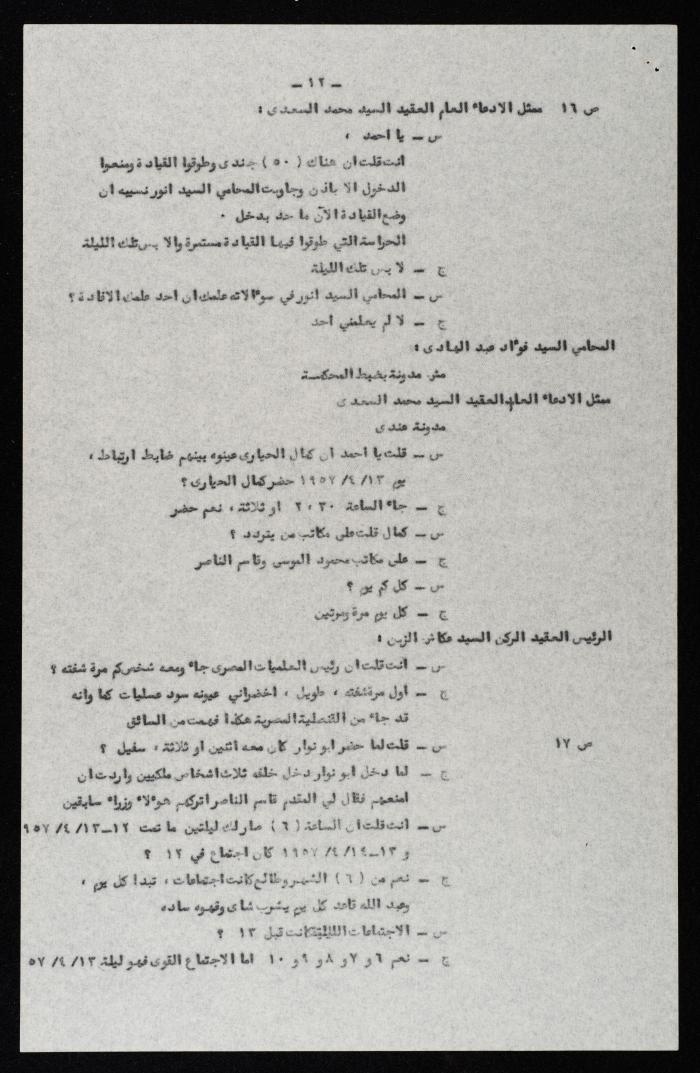 ـ ١٢ ـ
ص ١٦ ممثل الادعاء العام العقيد السيد محمد السعدى :
س ـ يا احمد ،
انت قلت ان هناك ( ٥٠ ) جندى وطوقوا القيادة ومنعوا
الدخول الا باذن وجاوبت المحامي السيد انور نسيبه ان
وضع القيادة الآن ما حد يدخل ٠
الحراسة التي طوقوا فيها القيادة مستمرة والا بس تلك الليلة
ج ـ لا بس تلك الليلة
س ـ المحامي السيد انور في سوءالاته علمك ان احد علمك الافادة ؟
ج ـ لا لم يعلمني احد
المحامي السيد فوءاد عبد الهادى :
مش مدونة بضبط المحكمة
ممثل الادعاء العام العقيد السيد محمد السعدى
مدونة عندى
س ـ قلت يا احمد ان كمال الحيارى عينوه بينهم ضابط ارتباط ،
يوم ١٣/ ٤/ ١٩٥٧ حضر كمال الحيارى ؟
ج ـ جاء الساعة ٣٠ ، ٢ او ثلاثة ، نعم حضر
س ـ كمال قلت على مكاتب من يتردد ؟
ج ـ على مكاتب محمود الموسى وقاسم الناصر
س ـ كل كم يوم ؟
ج ـ كل يوم مرة ومرتين
الرئيس العقيد الركن السيد عكاش الزبن :
س ـ انت قلت ان رئيس العلميات المصرى جاء ومعه شخص كم مرة شفته ؟
ج ـ اول مرة شفته ، طويل ، اخضراني عيونه سود عسليات كما وانه
قد جاء من القنصلية المصرية هكذا فهمت من السائق
ص ١٧ س ـ قلت لما حضر ابو نوار كان معه اثنين او ثلاثة ، سفيل ؟
ج ـ لما دخل ابو نوار دخل خلفه ثلاث اشخاص ملكيين واردت ان
امنعهم فقال لي المقدم قاسم الناصر اتركهم هوءلاء وزراء سابقين
س ـ انت قلت ان الساعة ( ٦ ) صار لك ليلتين ما نمت ١٢ـ١٣/ ٤/ ٩٥٧
و ١٣ـ١٤/ ٤/ ١٩٥٧ كان اجتماع في ١٢ ؟
ج ـ نعم من ( ٦ ) الشهر وطالع كانت اجتماعات ، تبدا كل يوم ،
وعبد الله قاعد كل يوم يشرب شاى وقهوه ساده
س ـ الاجتماعات الليلية كانت قبل ١٣ ؟
ج ـ نعم ٦ و ٧ و ٨ و ٩ و ١٠ اما الاجتماع القوى فهو ليلة ١٣/ ٤/ ٥٧